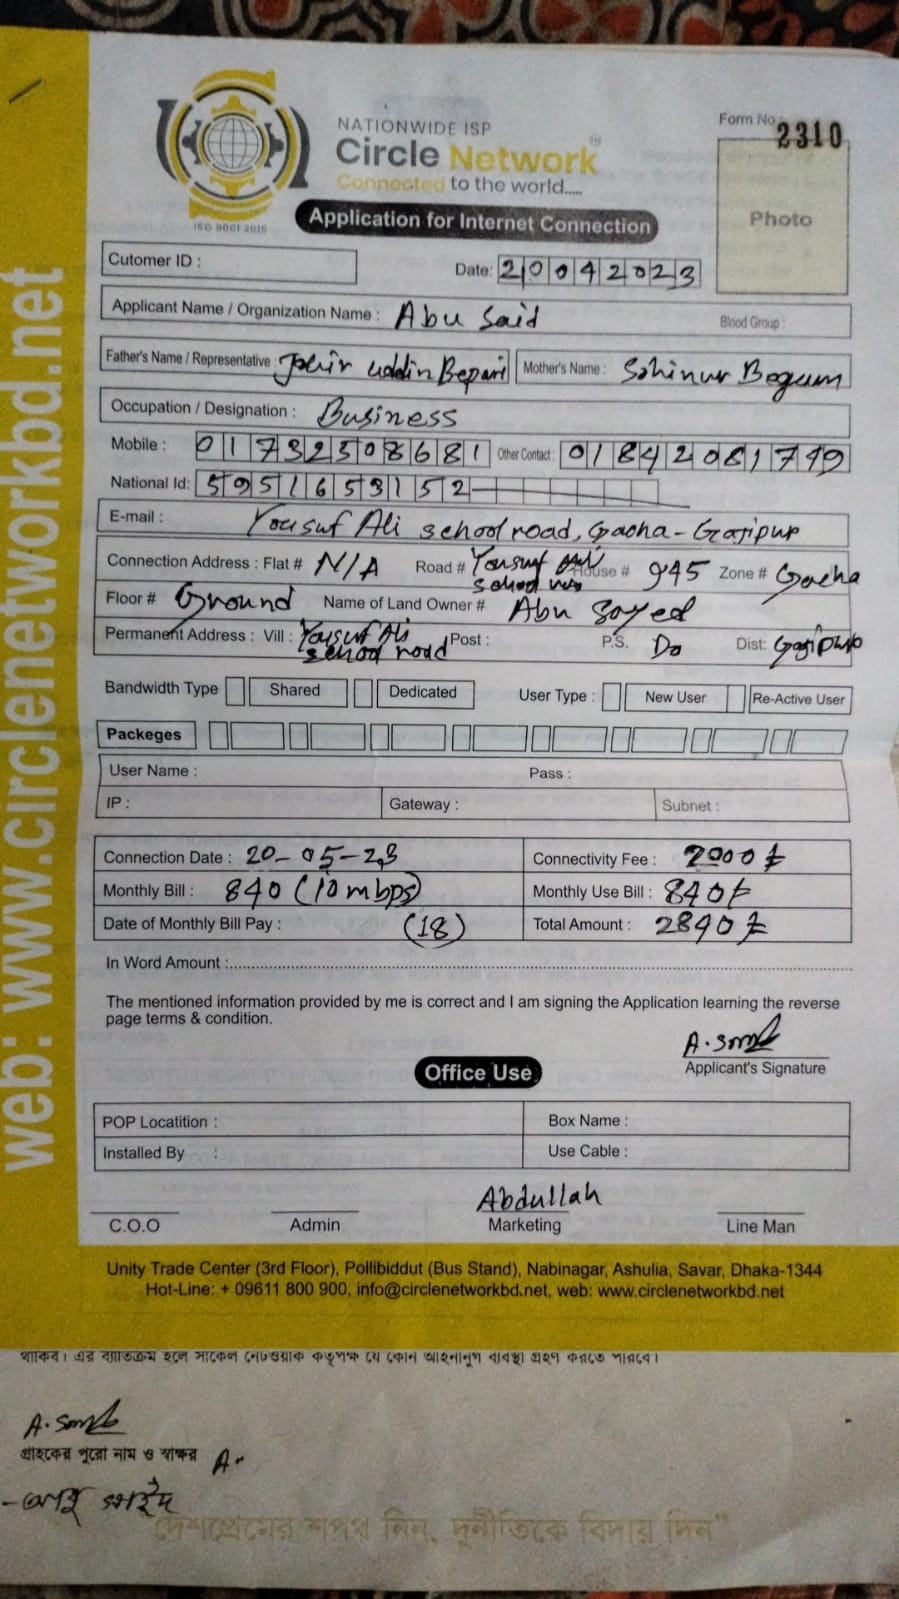 NATIONWIDE ISP
Circle Network
Connected to the world.....
ISO 9001 2015
Form No. 2310
Photo
Application for Internet Connection
Cutomer ID :
Date: 20042023
Applicant Name / Organization Name : Abu Said
Blood Group :
Father's Name / Representative : Johir uddin Bepari Mother's Name : Sohinur Begum
Occupation / Designation : Business
Mobile : 01732508681 Other Contact : 01842081749
National Id: 5951653152
E-mail : Yousuf Ali school road, Gacha-Gazipur
Connection Address : Flat # N/A Road # Yousuf Ali school House # 945 Zone # Gacha
Floor # Ground Name of Land Owner # Abu Sayed
Permanent Address : Vill : Yousuf Ali school road Post : P.S. Do Dist: Gazipur
Bandwidth Type Shared Dedicated User Type : New User Re-Active User
Packeges
User Name : Pass :
IP : Gateway : Subnet :
Connection Date : 20-05-23 Connectivity Fee : 2000৳
Monthly Bill : 840 (10 mbps) Monthly Use Bill : 840৳
Date of Monthly Bill Pay : (18) Total Amount : 2840৳
In Word Amount :
The mentioned information provided by me is correct and I am signing the Application learning the reverse
page terms & condition.
Applicant's Signature
Office Use
POP Locatition : Box Name :
Installed By : Use Cable :
Abdullah
C.O.O Admin Marketing Line Man
Unity Trade Center (3rd Floor), Pollibiddut (Bus Stand), Nabinagar, Ashulia, Savar, Dhaka-1344
Hot-Line: + 09611 800 900, info@circlenetworkbd.net, web: www.circlenetworkbd.net
web: www.circlenetworkbd.net
থাকিব। এর ব্যতিক্রম হলে সার্কেল নেটওয়ার্ক কতৃপক্ষ যে কোন আইনানুগ ব্যবস্থা গ্রহণ করতে পারবে।
গ্রাহকের পুরো নাম ও স্বাক্ষর A.
-আবু সাইদ
দেশপ্রেমের শপথ নিন, দুর্নীতিকে বিদায় দিন"